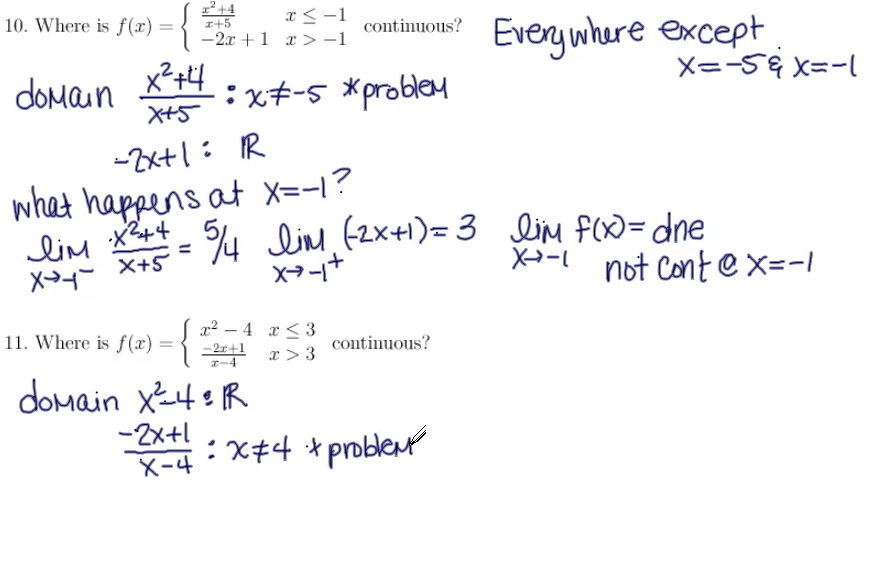 10. Where is f(x) = { x²+4/x+5 x ≤ −1 continuous?
−2x + 1 x > −1
Everywhere except
x=-5 & x=-1
domain x²+4/x+5 : x≠-5 *problem
-2x+1 : ℝ
what happens at x=-1?
lim x→-1⁻ x²+4/x+5 = 5/4 lim x→-1⁺ (-2x+1)=3 lim x→-1 f(x)= dne
not cont @ x=-1
11. Where is f(x) = { x² − 4 x ≤ 3 continuous?
−2x+1/x−4 x > 3
domain x²-4 : ℝ
-2x+1/x-4 : x≠4 *problem